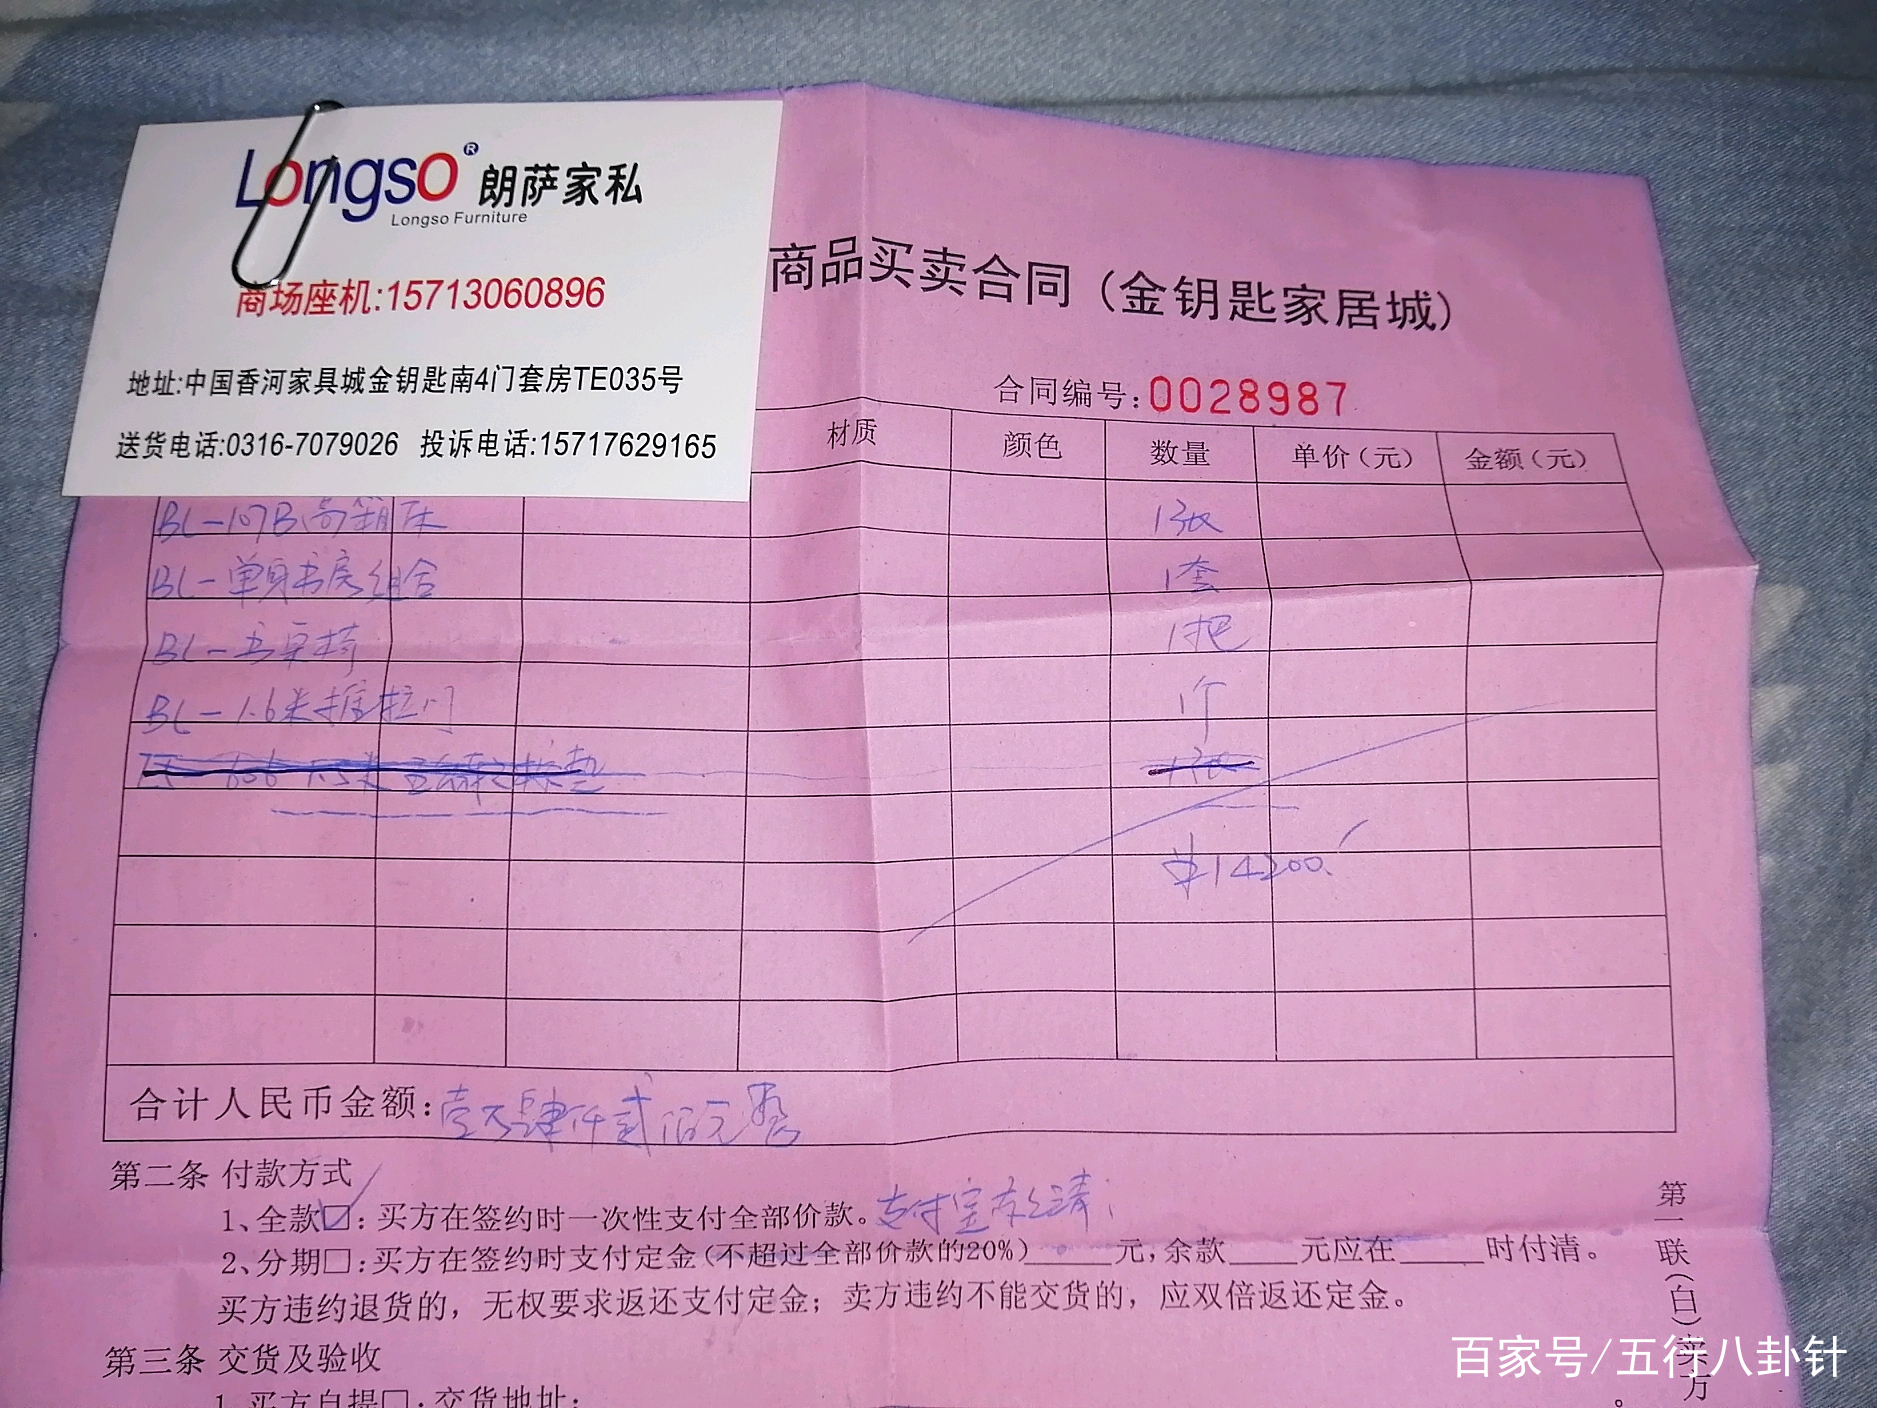 Longso® 朗萨家私
Longso Furniture
商场座机:15713060896
地址:中国香河家具城金钥匙南4门套房TE035号
送货电话:0316-7079026 投诉电话:15717629165
商品买卖合同（金钥匙家居城）
合同编号:0028987
材质 颜色 数量 单价（元） 金额（元）
BL-107B高箱床 1张
BL-单身书房组合 1套
BL-书桌椅 1把
BL-1.6米推拉门 1个
¥14200.
合计人民币金额:壹万肆仟贰佰元整
第二条 付款方式
1、全款☑:买方在签约时一次性支付全部价款。支付宝
2、分期□:买方在签约时支付定金(不超过全部价款的20%)______元,余款_____元应在______时付清。
买方违约退货的，无权要求返还支付定金；卖方违约不能交货的，应双倍返还定金。
第三条 交货及验收
1、买方自提□:交货地址:
。
第一联(白)买方
百家号/五行八卦针